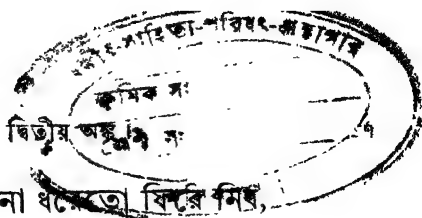 বঙ্গীয়-সাহিত্য-পরিষৎ-গ্রন্থাগার
ক্রমিক সং
দ্বিতীয় অঙ্ক
সং
না ধরেতো ফিরি দিব,